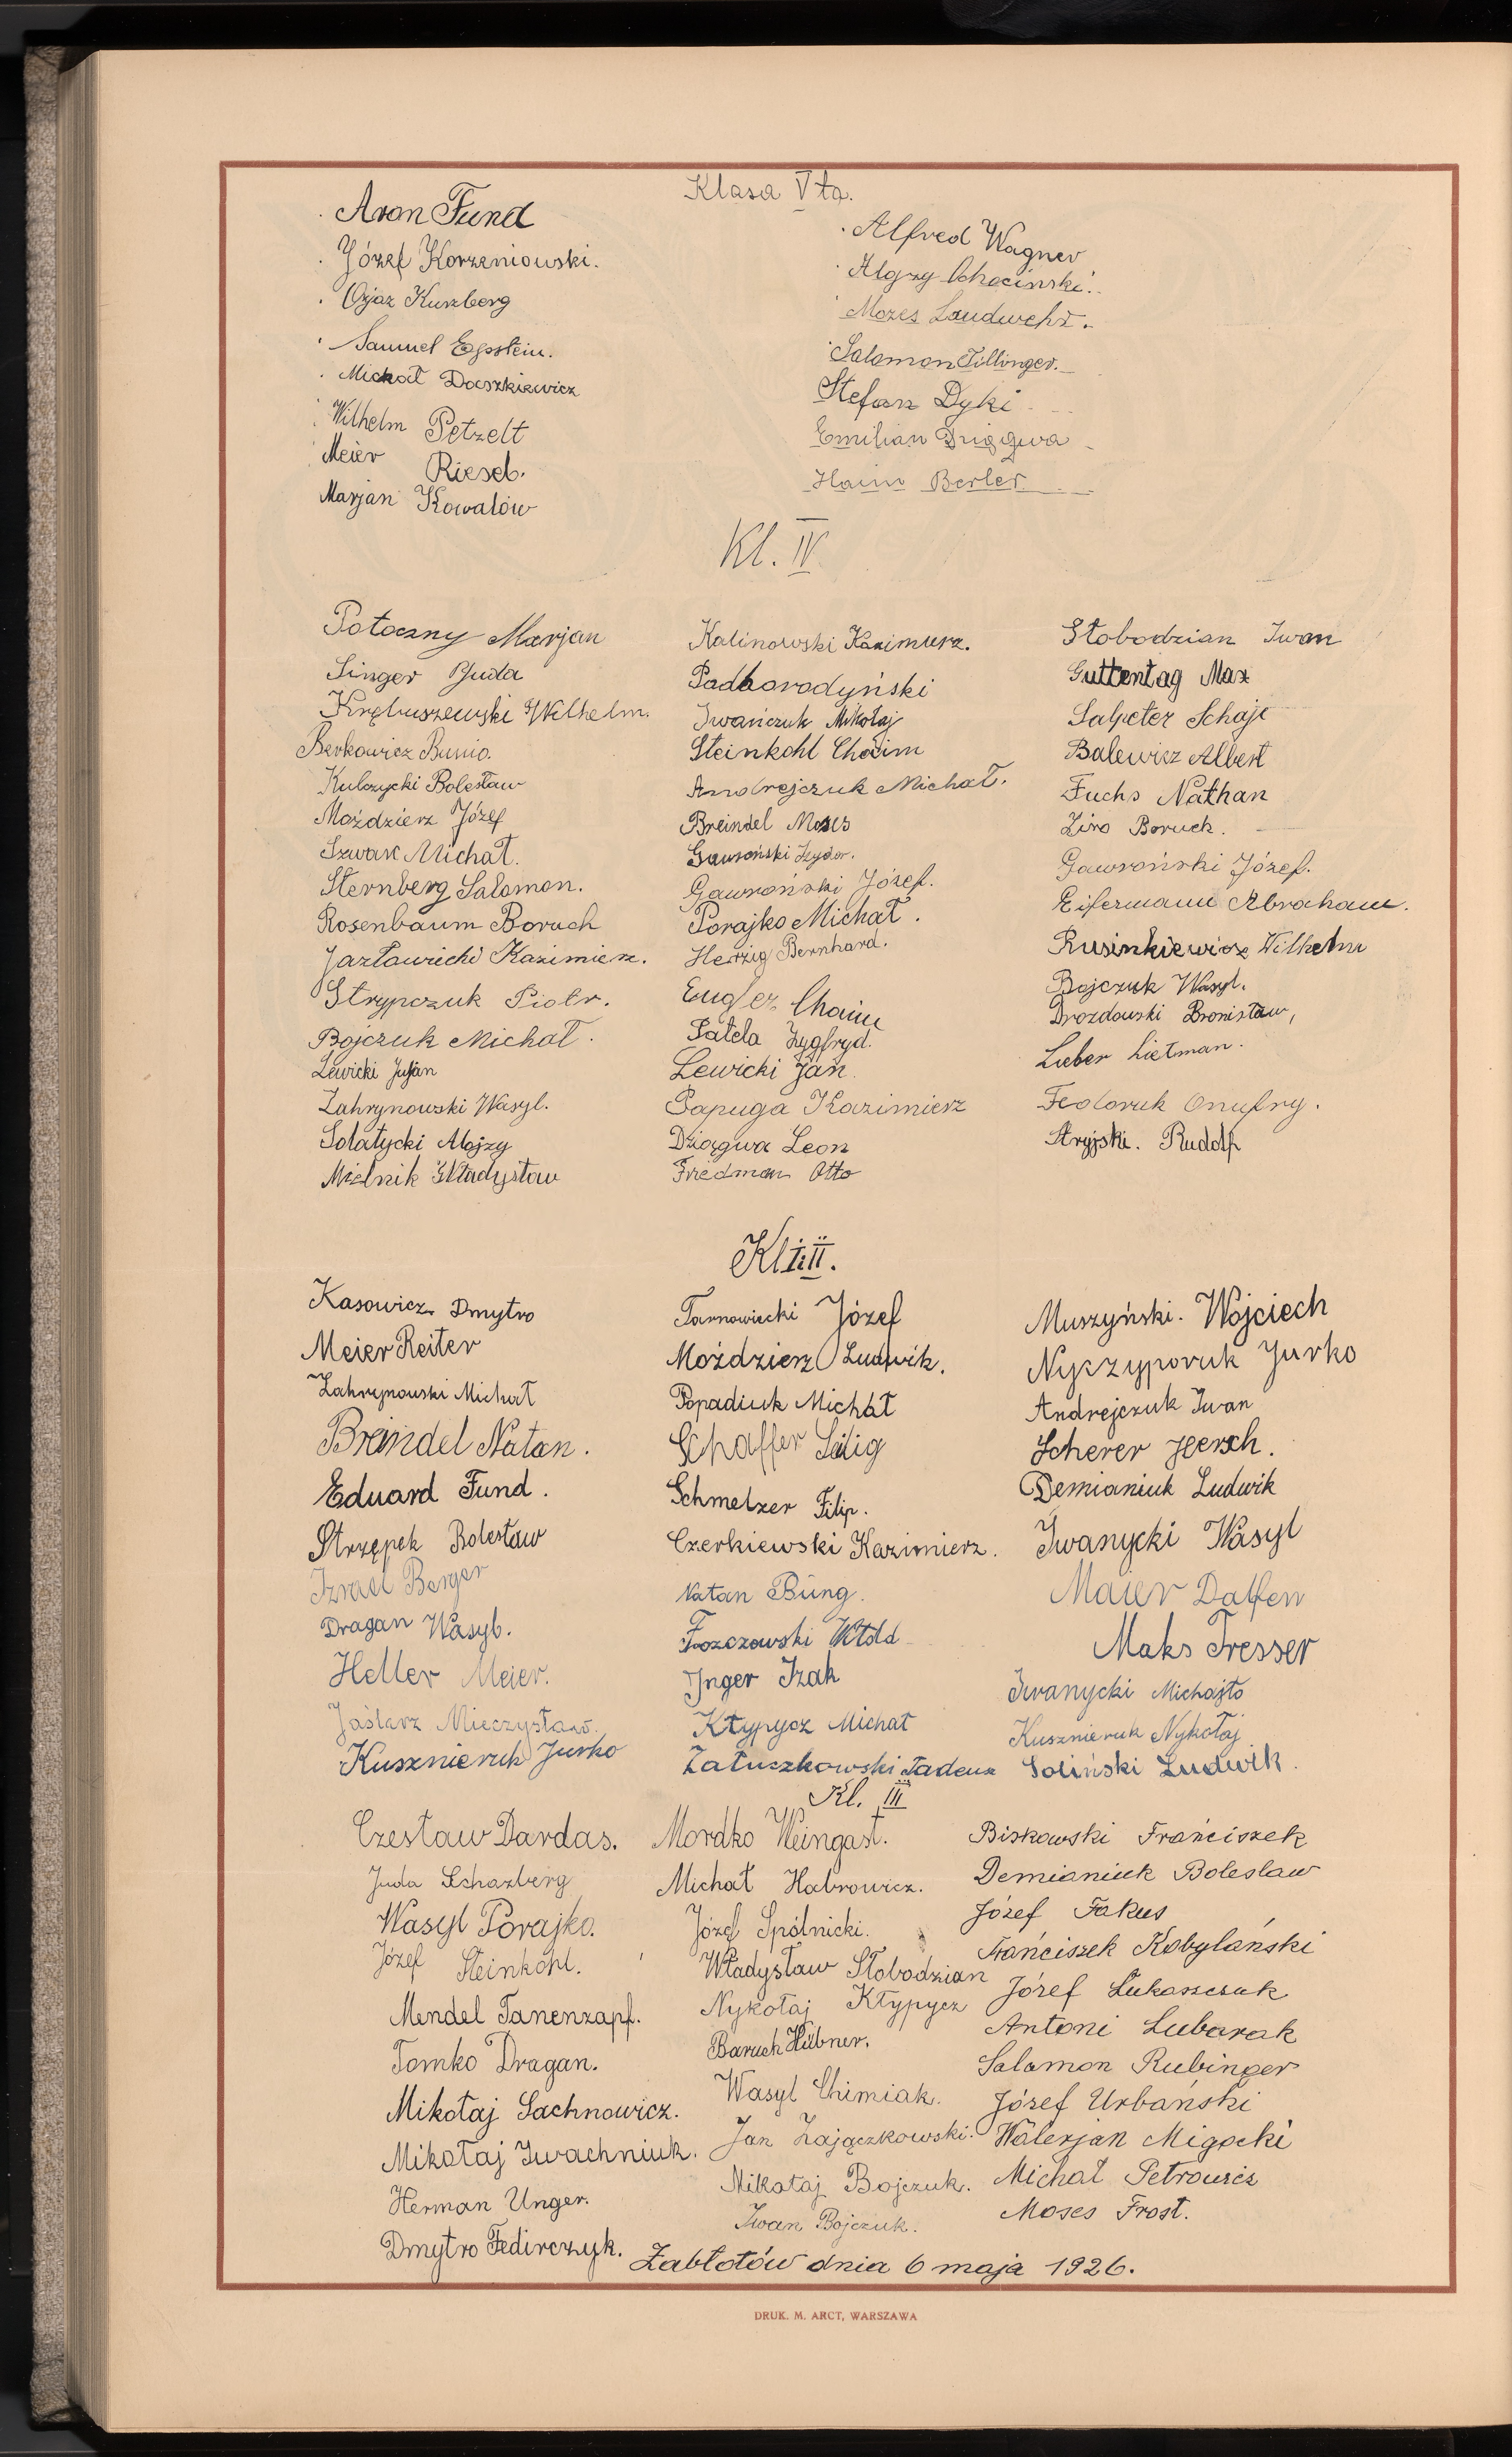 Klasa V ta.
Aron Fund
Józef Korzeniowski.
Ojzaz Kurzberg
Samuel Epstein.
Michał Daszkiewicz
Wilhelm Petzelt
Meier Riesel.
Marjan Kowalów
Alfred Wagner
Chociński.
Mozes Landwehr.
Salomon Tillinger.
Stefan Dyki
Emilian Dziągwa
Haim Berler
Kl. IV
Potoczny Marjan
Singer Juda
Krębuszewski Wilhelm.
Berkowicz Bunio.
Kulczycki Bolesław
Moździerz Józef
Szwarc Michał.
Sternberg Salomon.
Rosenbaum Boruch
Jazławiecki Kazimierz.
Strypczuk Piotr.
Bojczuk Michał.
Lewicki Juljan
Zahrynowski Wasyl.
Sołatycki Alojzy
Mielnik Władysław
Kalinowski Kazimierz.
Padborodyński
Iwańczuk Mikołaj
Steinkohl Chaim
Andrejczuk Michał.
Breindel Moses
Gawroński Izydor.
Gawroński Józef.
Porajko Michał.
Herzig Bernhard.
Engler Chaim
Satela Zygfryd.
Lewicki Jan
Papuga Kazimierz
Dziągwa Leon
Friedman Otto
Słobodzian Iwan
Guttentag Max
Salpeter Schaje
Balewicz Albert
Fuchs Nathan
Boruch.
Gawroński Józef.
Eifermann Abraham.
Rusinkiewicz Wilhelm
Bojczuk Wasyl.
Drozdowski Bronisław,
Lieber Lietman.
Fedoruk Onufry.
Stryjski. Rudolf
Kl. III.
Kasowicz Dmytro
Meier Reiter
Zahrynowski Michał
Breindel Natan.
Eduard Fund.
Strzępek Bolesław
Izrael Berger
Dragan Wasyl.
Heller Meier.
Jaślarz Mieczysław.
Kusznieruk Jurko
Tarnowiecki Józef
Moździerz Ludwik.
Popadiuk Michał
Schaffer Selig
Schmelzer Filip.
Czerkiewski Kazimierz.
Natan Büng.
Witold
Inger Izak
Kłypycz Michał
Załuszkowski Tadeusz
Muszyński. Wojciech
Nyczyporuk Jurko
Andrejczuk Iwan
Scherer Hersch.
Demianiuk Ludwik
Iwanycki Wasyl
Maier Dalfen
Maks Tresser
Iwanycki Michajło
Kusznieruk Nykołaj
Soliński Ludwik.
Kl. III
Czesław Dardas.
Juda Scharzberg
Wasyl Porajko.
Józef Steinkohl.
Mendel Tanenzapf.
Tomko Dragan.
Mikołaj Sachnowicz.
Mikołaj Iwachniuk.
Herman Unger.
Dmytro Fedirczyk.
Mordko Weingast.
Michał Habrowicz.
Józef Spólnicki.
Władysław Słobodzian
Nykołaj Kłypycz
Baruch Hübner.
Wasyl Chimiak.
Jan Zajączkowski.
Mikołaj Bojczuk.
Iwan Bojczuk.
Biskowski Franciszek
Demianiuk Bolesław
Józef Fakus
Franciszek Kobylański
Józef Łukaszczuk
Antoni Lubarak
Salamon Rubinger
Józef Urbański
Walerjan Migocki
Michał Petrowicz
Moses Frost.
Zabłotów dnia 6 maja 1926.
DRUK. M. ARCT, WARSZAWA